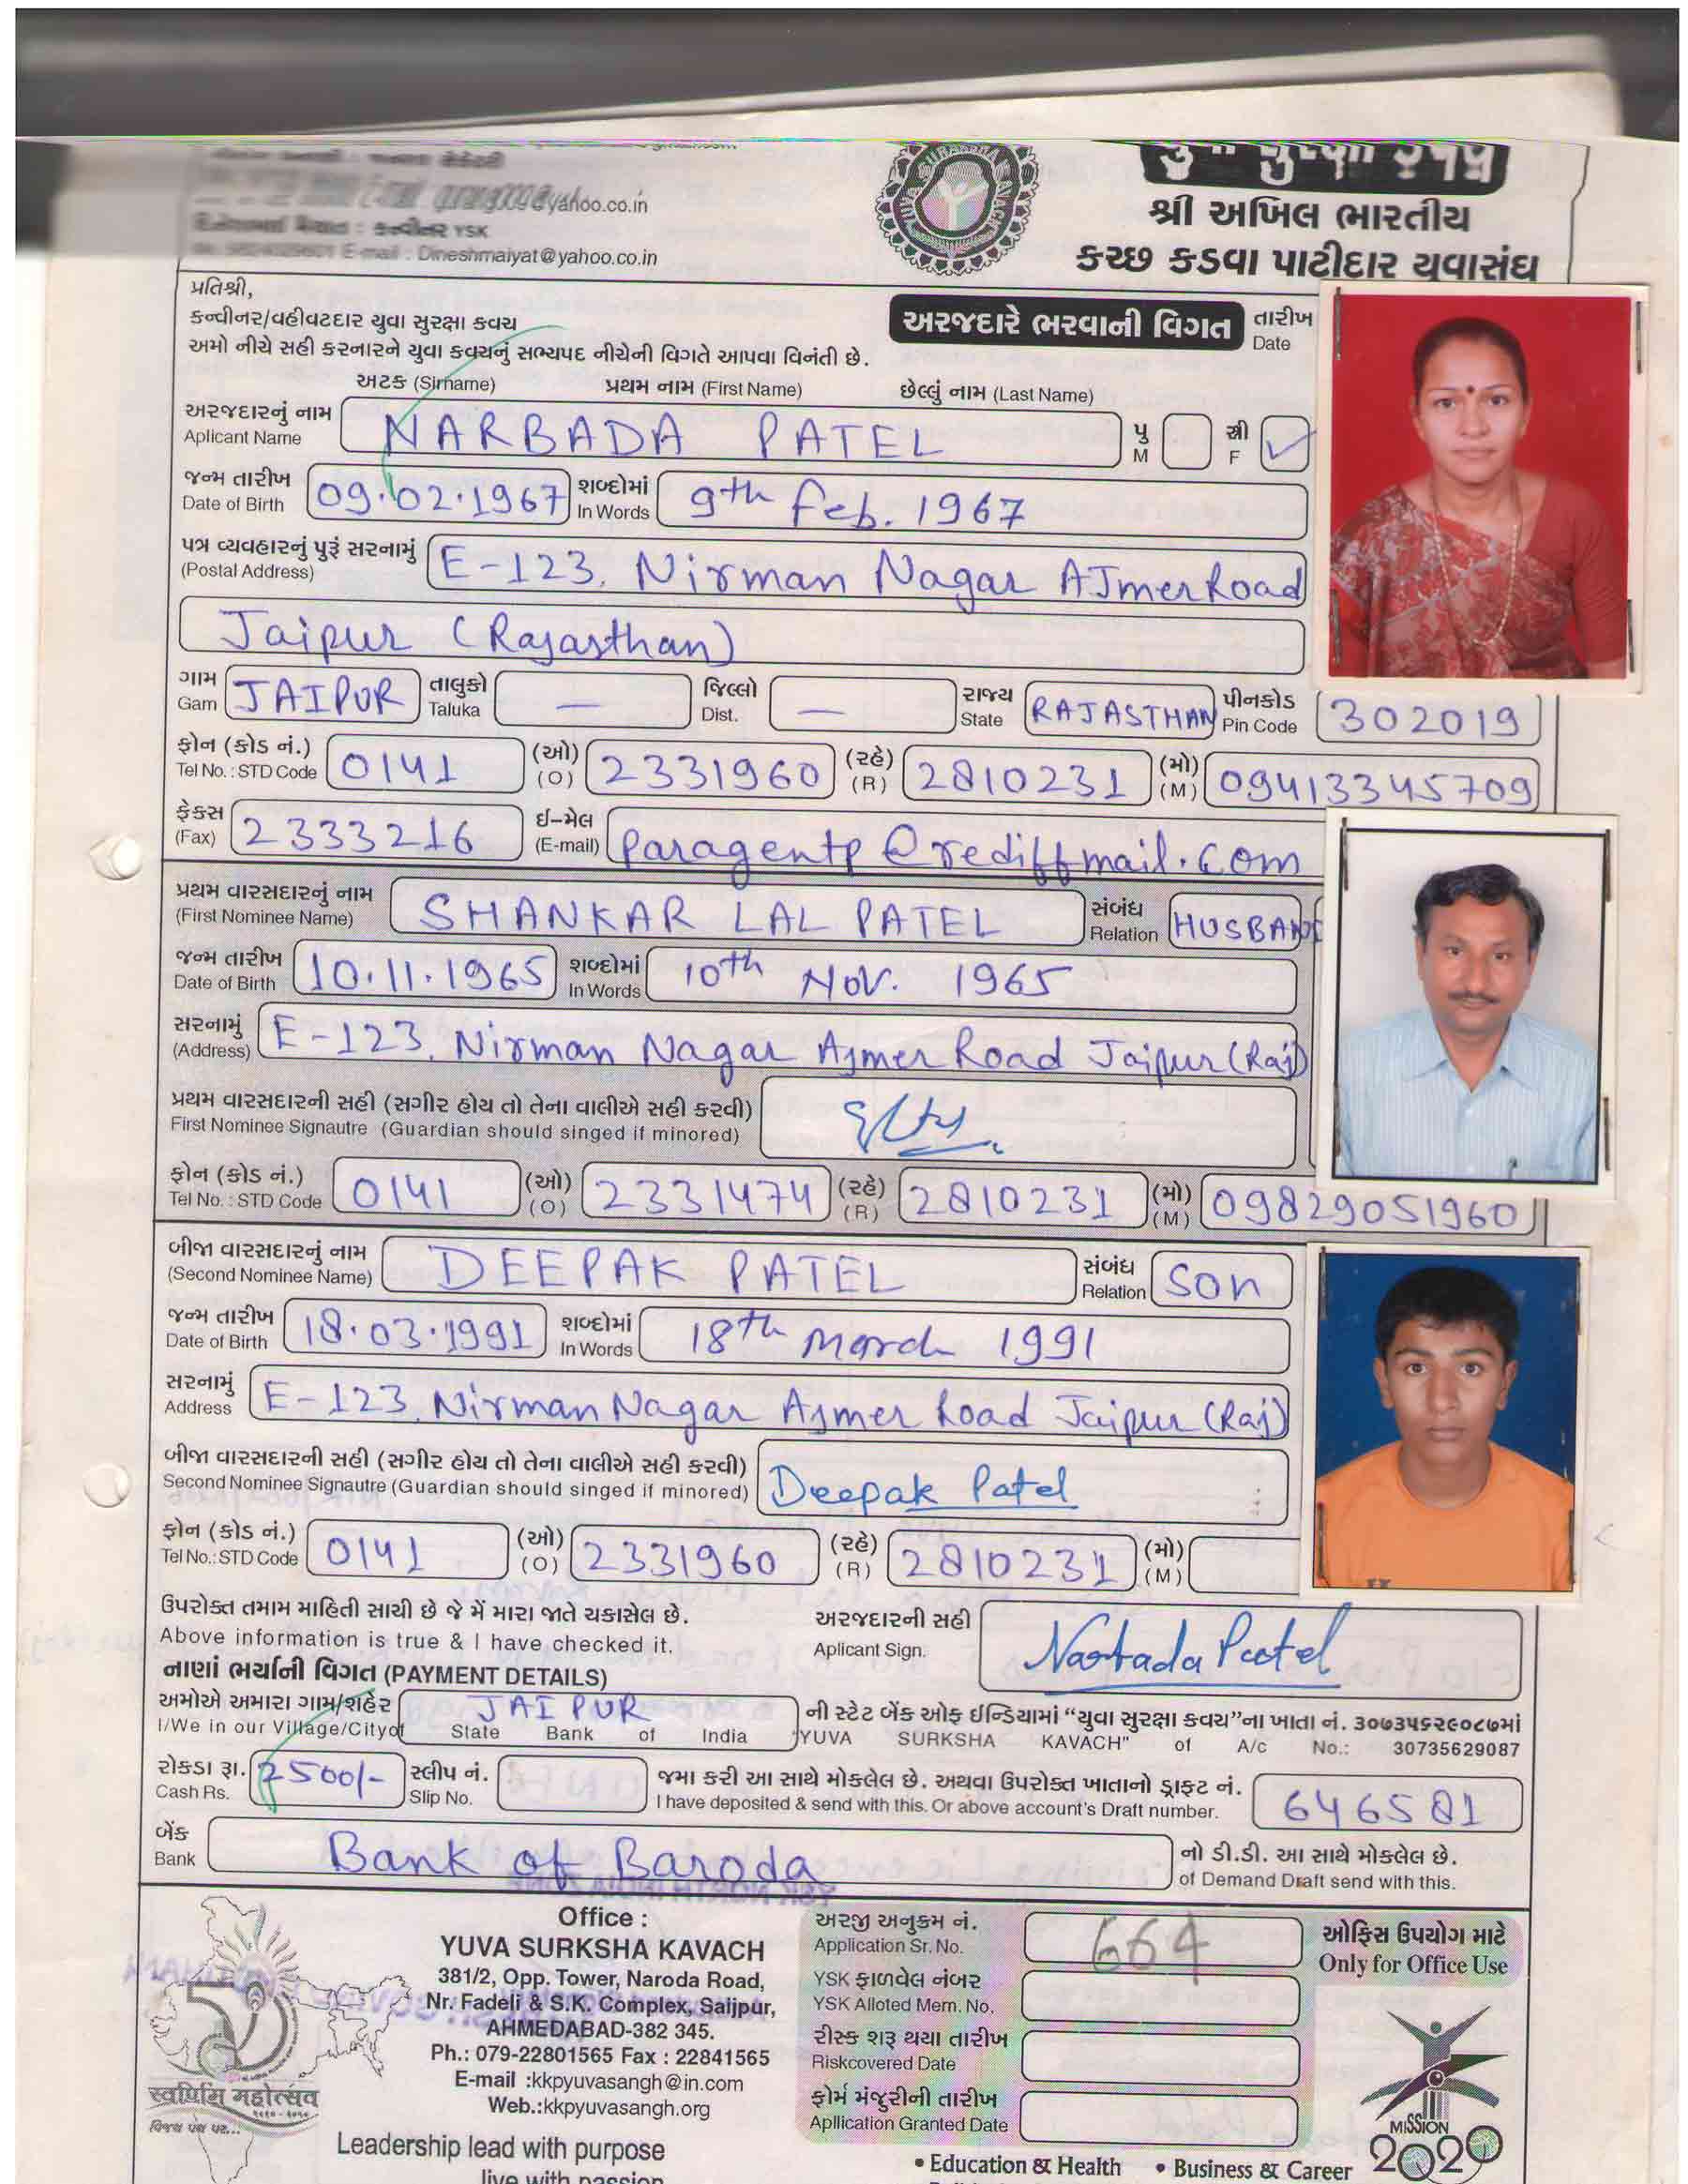 @yahoo.co.in
YSK
E-mail : Dineshmaiyat@yahoo.co.in
શ્રી અખિલ ભારતીય
કચ્છ કડવા પાટીદાર યુવાસંઘ
પ્રતિશ્રી,
કન્વીનર/વહીવટદાર યુવા સુરક્ષા કવચ
અમો નીચે સહી કરનારને યુવા કવચનું સભ્યપદ નીચેની વિગતે આપવા વિનંતી છે.
અરજદારે ભરવાની વિગત તારીખ
Date
અટક (Sirname) પ્રથમ નામ (First Name) છેલ્લું નામ (Last Name)
અરજદારનું નામ
Aplicant Name NARBADA PATEL પુ M સ્ત્રી F ✓
જન્મ તારીખ
Date of Birth 09.02.1967 શબ્દોમાં In Words 9th Feb. 1967
પત્ર વ્યવહારનું પુરૂં સરનામું
(Postal Address) E-123, Nirman Nagar AJmer Road
Jaipur (Rajasthan)
ગામ Gam JAIPUR તાલુકો Taluka — જિલ્લો Dist. — રાજ્ય State RAJASTHAN પીનકોડ Pin Code 302019
ફોન (કોડ નં.)
Tel No. : STD Code 0141 (ઓ) (O) 2331960 (રહે) (R) 2810231 (મો) (M) 09413345709
ફેક્સ (Fax) 2333216 ઈ-મેલ (E-mail) paragentp@rediffmail.com
પ્રથમ વારસદારનું નામ
(First Nominee Name) SHANKAR LAL PATEL સંબંધ Relation HUSBAND
જન્મ તારીખ
Date of Birth 10.11.1965 શબ્દોમાં In Words 10th Nov. 1965
સરનામું
(Address) E-123, Nirman Nagar Ajmer Road Jaipur (Raj)
પ્રથમ વારસદારની સહી (સગીર હોય તો તેના વાલીએ સહી કરવી)
First Nominee Signautre (Guardian should singed if minored)
ફોન (કોડ નં.)
Tel No. : STD Code 0141 (ઓ) (O) 2331474 (રહે) (R) 2810231 (મો) (M) 09829051960
બીજા વારસદારનું નામ
(Second Nominee Name) DEEPAK PATEL સંબંધ Relation Son
જન્મ તારીખ
Date of Birth 18.03.1991 શબ્દોમાં In Words 18th March 1991
સરનામું
Address E-123, Nirman Nagar Ajmer Road Jaipur (Raj)
બીજા વારસદારની સહી (સગીર હોય તો તેના વાલીએ સહી કરવી)
Second Nominee Signautre (Guardian should singed if minored) Deepak Patel
ફોન (કોડ નં.)
Tel No.: STD Code 0141 (ઓ) (O) 2331960 (રહે) (R) 2810231 (મો) (M)
ઉપરોક્ત તમામ માહિતી સાચી છે જે મેં મારા જાતે ચકાસેલ છે. અરજદારની સહી
Above information is true & I have checked it. Aplicant Sign. Narbada Patel
નાણાં ભર્યાની વિગત (PAYMENT DETAILS)
અમોએ અમારા ગામ/શહેર JAIPUR ની સ્ટેટ બેંક ઓફ ઈન્ડિયામાં “યુવા સુરક્ષા કવચ”ના ખાતા નં. ૩૦૭૩૫૬૨૯૦૮૭માં
I/We in our Village/Cityof State Bank of India "YUVA SURKSHA KAVACH" of A/c No.: 30735629087
રોકડા રૂા. 7500/- સ્લીપ નં. જમા કરી આ સાથે મોકલેલ છે. અથવા ઉપરોક્ત ખાતાનો ડ્રાફટ નં. 646581
Cash Rs. Slip No. I have deposited & send with this. Or above account's Draft number.
બેંક Bank of Baroda નો ડી.ડી. આ સાથે મોકલેલ છે.
Bank of Demand Draft send with this.
Office :
YUVA SURKSHA KAVACH
381/2, Opp. Tower, Naroda Road,
Nr. Fadeli & S.K. Complex, Saijpur,
AHMEDABAD-382 345.
Ph.: 079-22801565 Fax : 22841565
E-mail :kkpyuvasangh@in.com
Web.:kkpyuvasangh.org
Leadership lead with purpose
live with passion
स्वर्णिम महोत्सव
અરજી અનુક્રમ નં.
Application Sr. No. 664
YSK ફાળવેલ નંબર
YSK Alloted Mem. No.
રીસ્ક શરૂ થયા તારીખ
Riskcovered Date
ફોર્મ મંજુરીની તારીખ
Apllication Granted Date
ઓફિસ ઉપયોગ માટે
Only for Office Use
MISSION
2020
• Education & Health • Business & Career